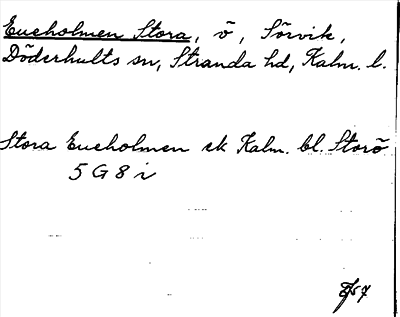 Eneholmen Stora, ö, Sörvik,
Döderhults sn, Stranda hd, Kalm. l.
Stora Eneholmen ek Kalm. bl. Storö
5 G 8 i
57